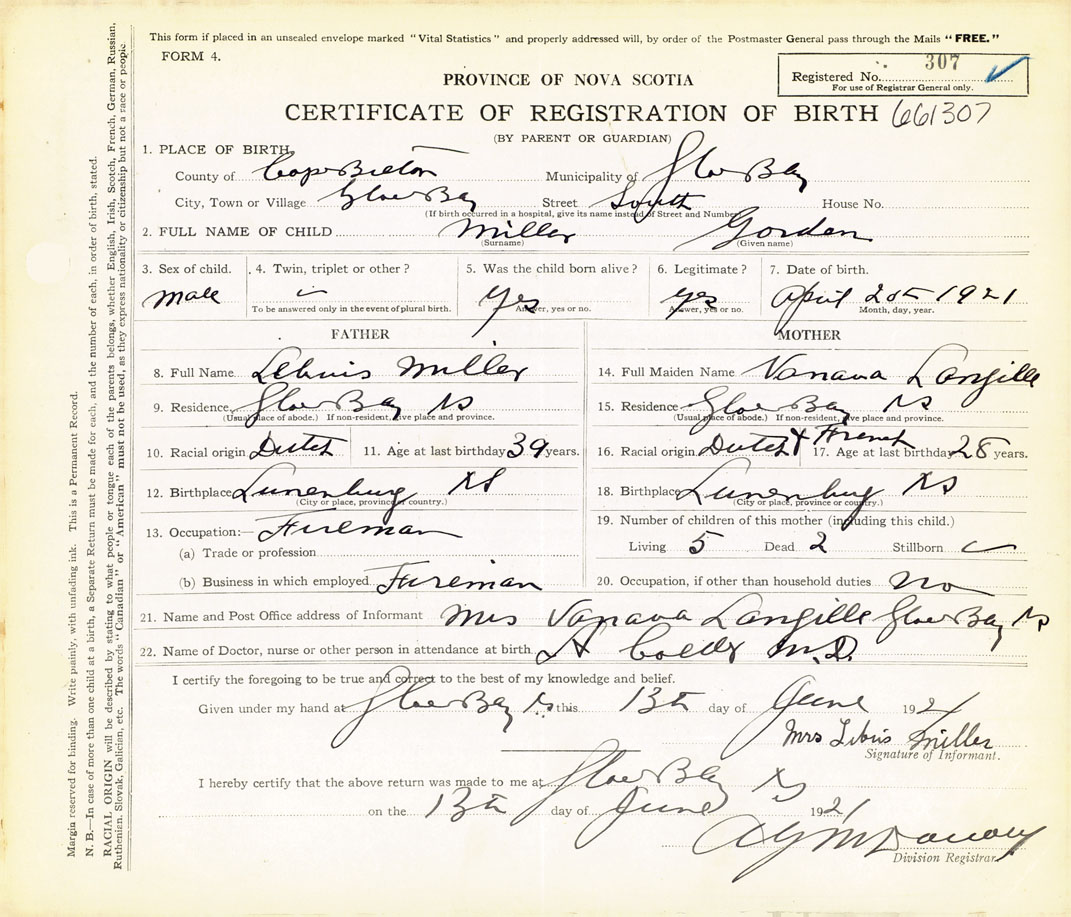 This form if placed in an unsealed envelope marked "Vital Statistics" and properly addressed will, by order of the Postmaster General pass through the Mails "FREE."
FORM 4.
307
Registered No.
For use of Registrar General only.
PROVINCE OF NOVA SCOTIA
CERTIFICATE OF REGISTRATION OF BIRTH 661307
(BY PARENT OR GUARDIAN)
1. PLACE OF BIRTH,
County of Cape Breton Municipality of Glace Bay
City, Town or Village Glace Bay Street South House No.
(If birth occurred in a hospital, give its name instead of Street and Number)
2. FULL NAME OF CHILD Miller Gorden
(Surname) (Given name)
3. Sex of child. 4. Twin, triplet or other? 5. Was the child born alive? 6. Legitimate? 7. Date of birth.
Male Yes Yes April 20th 1921
To be answered only in the event of plural birth. Answer, yes or no. Answer, yes or no. Month, day, year.
FATHER MOTHER
8. Full Name Miller 14. Full Maiden Name Vanava Langille
9. Residence Glace Bay NS 15. Residence Glace Bay NS
(Usual place of abode.) If non-resident, give place and province. (Usual place of abode.) If non-resident, give place and province.
10. Racial origin Dutch 11. Age at last birthday 39 years. 16. Racial origin Dutch & French 17. Age at last birthday 28 years.
12. Birthplace Lunenburg NS 18. Birthplace Lunenburg NS
(City or place, province or country.) (City or place, province or country.)
13. Occupation:— Fireman 19. Number of children of this mother (including this child.)
(a) Trade or profession Living 5 Dead 2 Stillborn
(b) Business in which employed Fireman 20. Occupation, if other than household duties No
21. Name and Post Office address of Informant Mrs Vanava Langille Glace Bay NS
22. Name of Doctor, nurse or other person in attendance at birth. M.D.
I certify the foregoing to be true and correct to the best of my knowledge and belief.
Given under my hand at Glace Bay NS this 13th day of June 1921
Mrs Libius Miller
Signature of Informant.
I hereby certify that the above return was made to me at Glace Bay NS
on the 13th day of June 1921
Division Registrar.
Margin reserved for binding. Write plainly, with unfading ink. This is a Permanent Record.
N. B.—In case of more than one child at a birth, a Separate Return must be made for each, and the number of each, in order of birth, stated.
RACIAL ORIGIN will be described by stating to what people or tongue each of the parents belongs, whether English, Irish, Scotch, French, German, Russian,
Ruthenian, Slovak, Galician, etc. The words "Canadian" or "American" must not be used, as they express nationality or citizenship but not a race or people